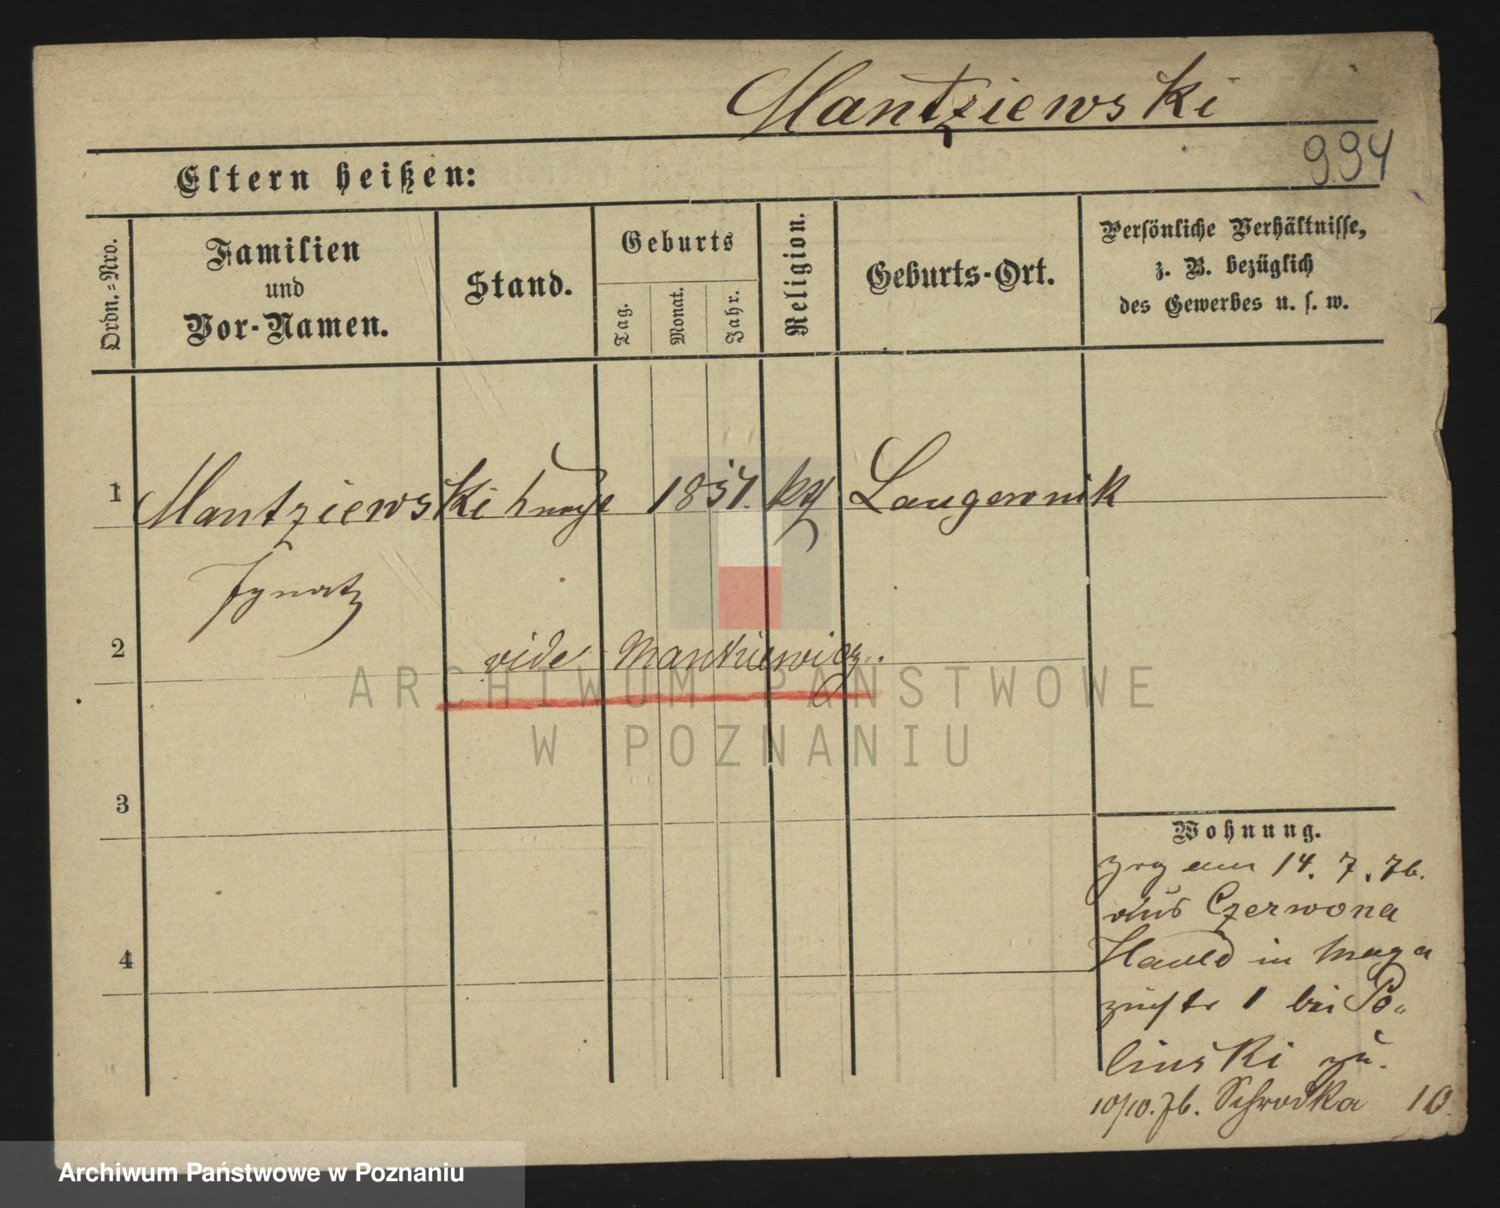 Mantziewski
994
Eltern heißen:
Ordn.=Nro.
Familien
und
Vor-Namen.
Stand.
Geburts
Tag.
Monat.
Jahr.
Religion.
Geburts-Ort.
Persönliche Verhältnisse,
z. B. bezüglich
des Gewerbes u. s. w.
1 Mantziewski Knecht 1851. kth Langewnik
Ignatz
2 vide Mankiewicz.
ARCHIWUM PAŃSTWOWE
W POZNANIU
3
Wohnung.
zug am 14. 7. 76.
aus Czerwona
Hauld in Maga
zinstr 1 bei Po-
linski zu.
4
10/10. 76. Schrodka 10
Archiwum Państwowe w Poznaniu